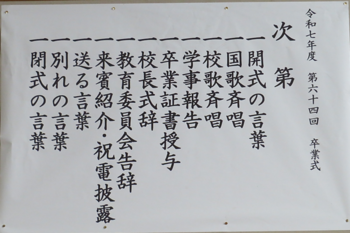 令和七年度 第六十四回 卒業式
次第
一開式の言葉
一国歌斉唱
一校歌斉唱
一学事報告
一卒業証書授与
一校長式辞
一教育委員会告辞
一来賓紹介・祝電披露
一送る言葉
一別れの言葉
一閉式の言葉